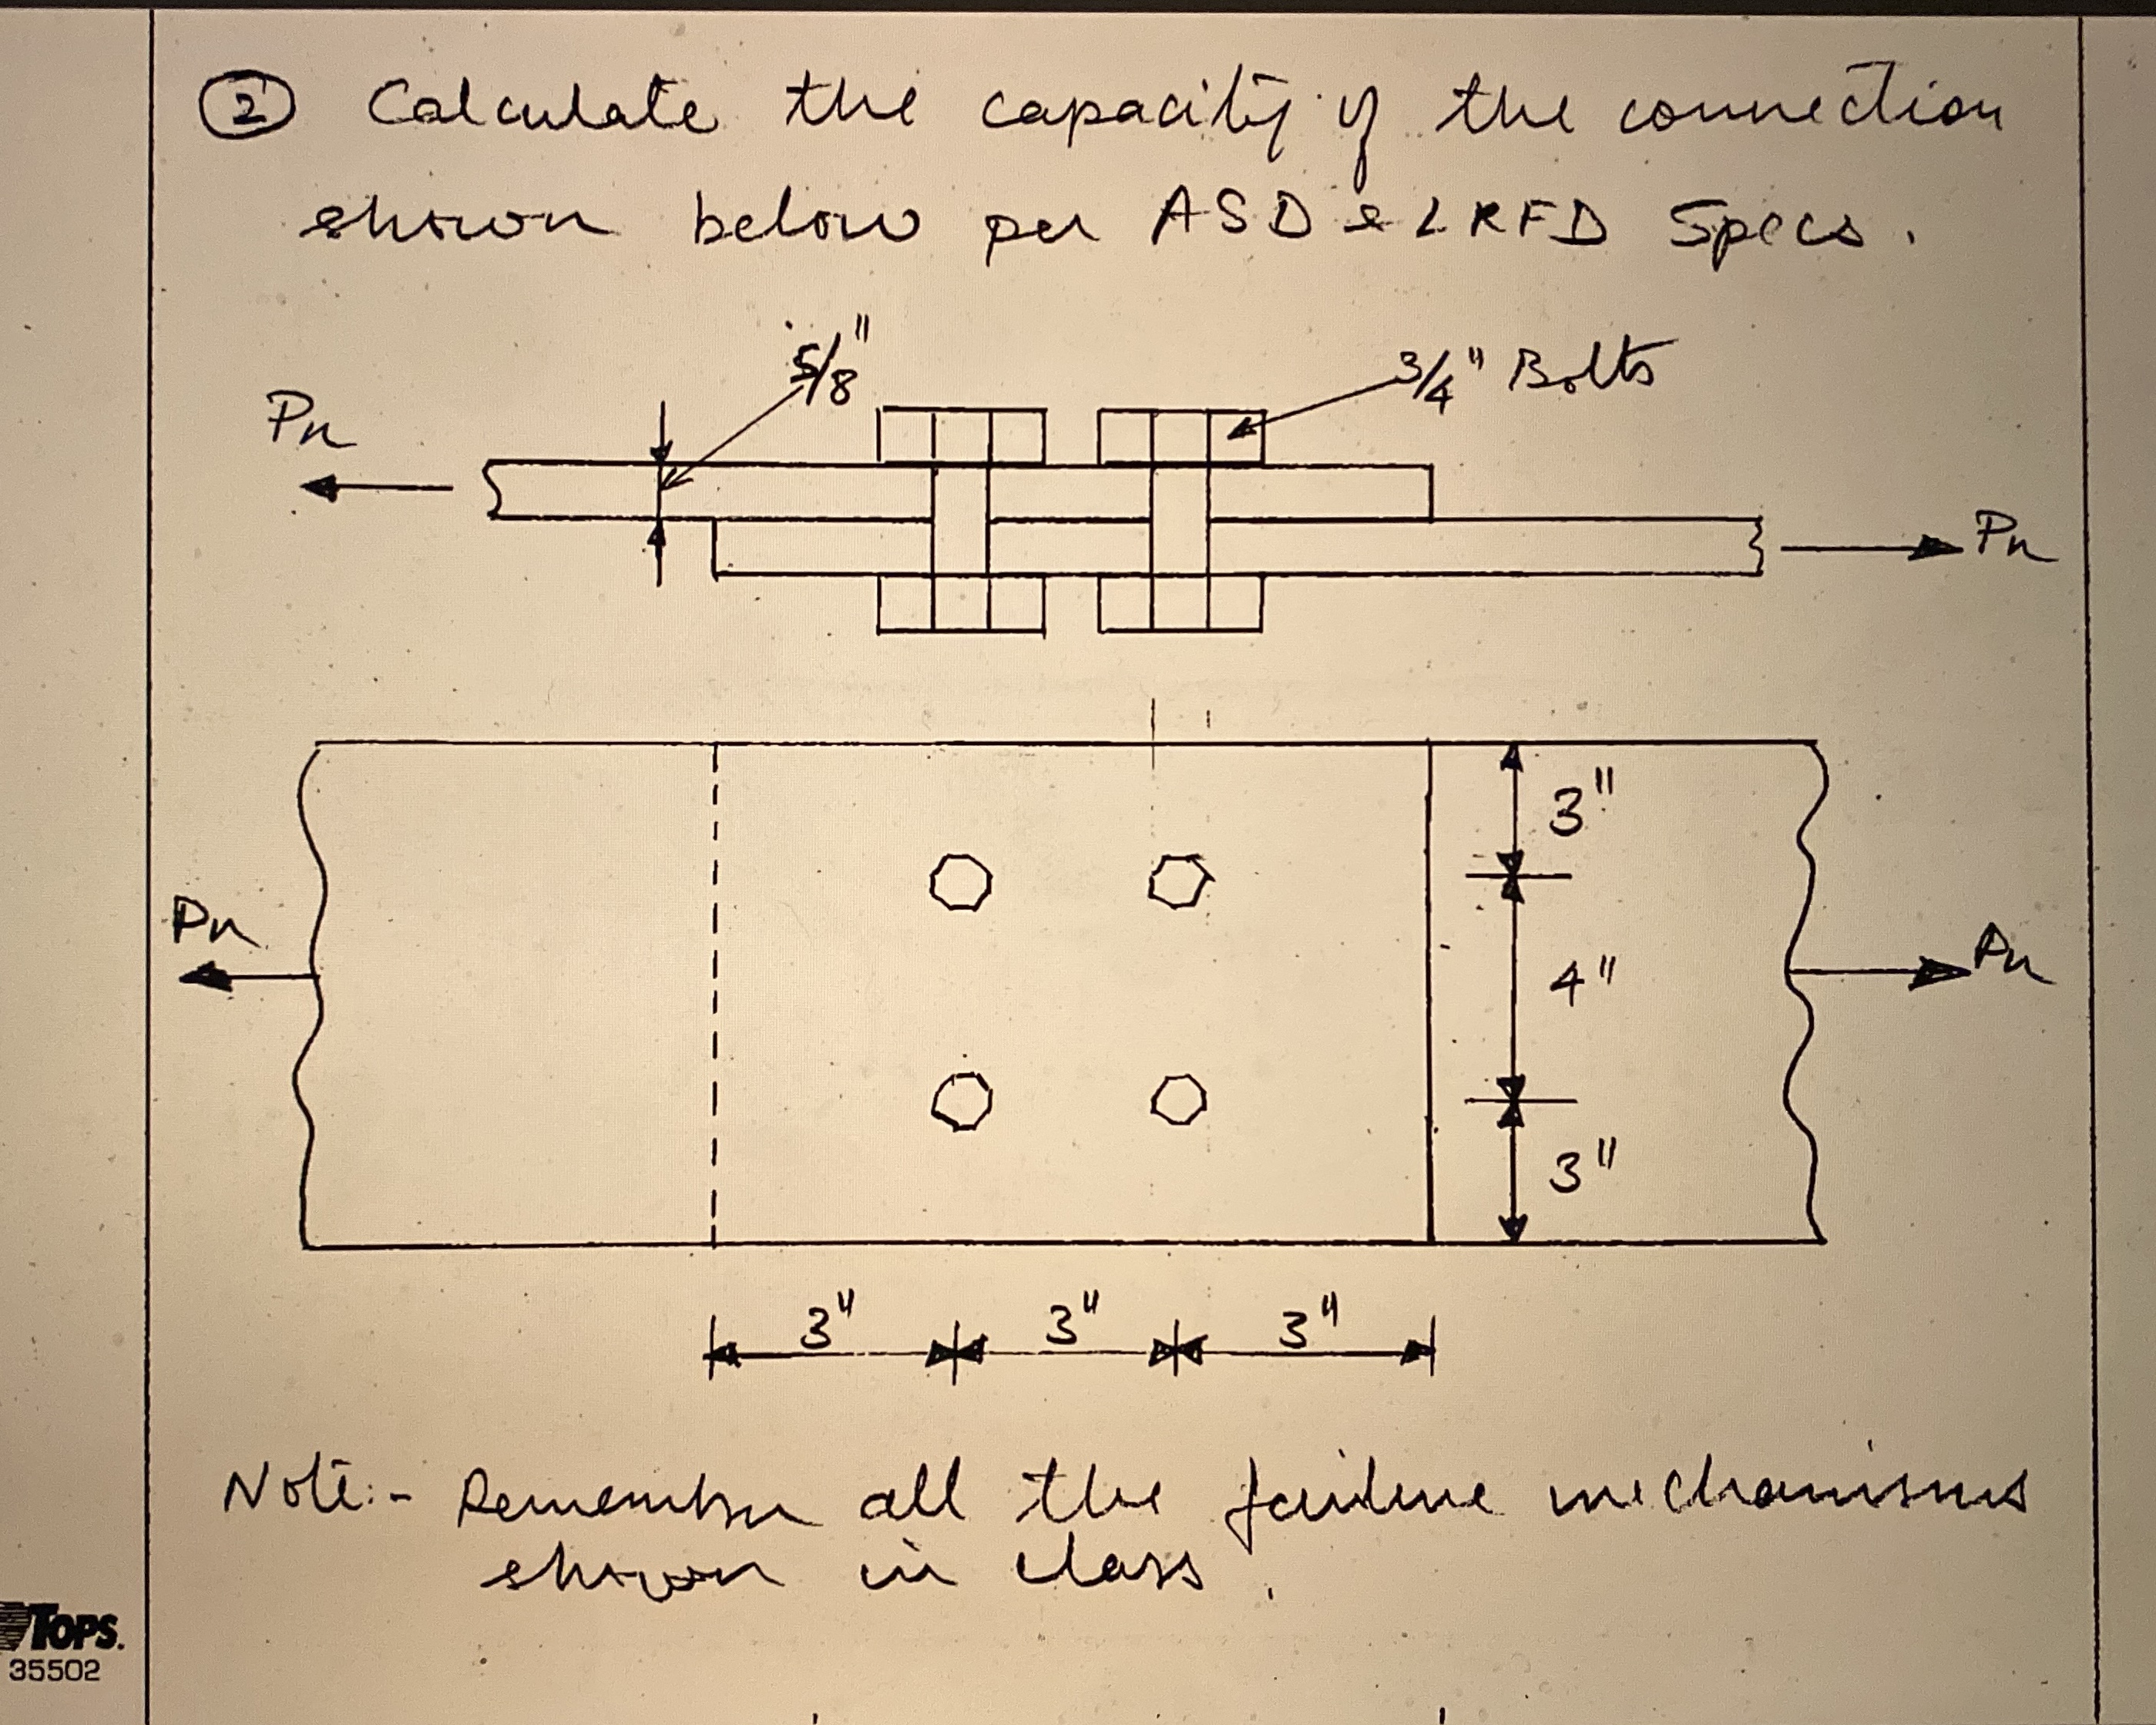 ② Calculate the capacity of the connection
shown below per ASD & LRFD Specs.
5/8"
3/4" Bolts
Pn
Pn
3"
4"
Pn
Pn
3"
3" 3" 3"
Note:- Remember all the failure mechanisms
shown in class.
TOPS.
35502